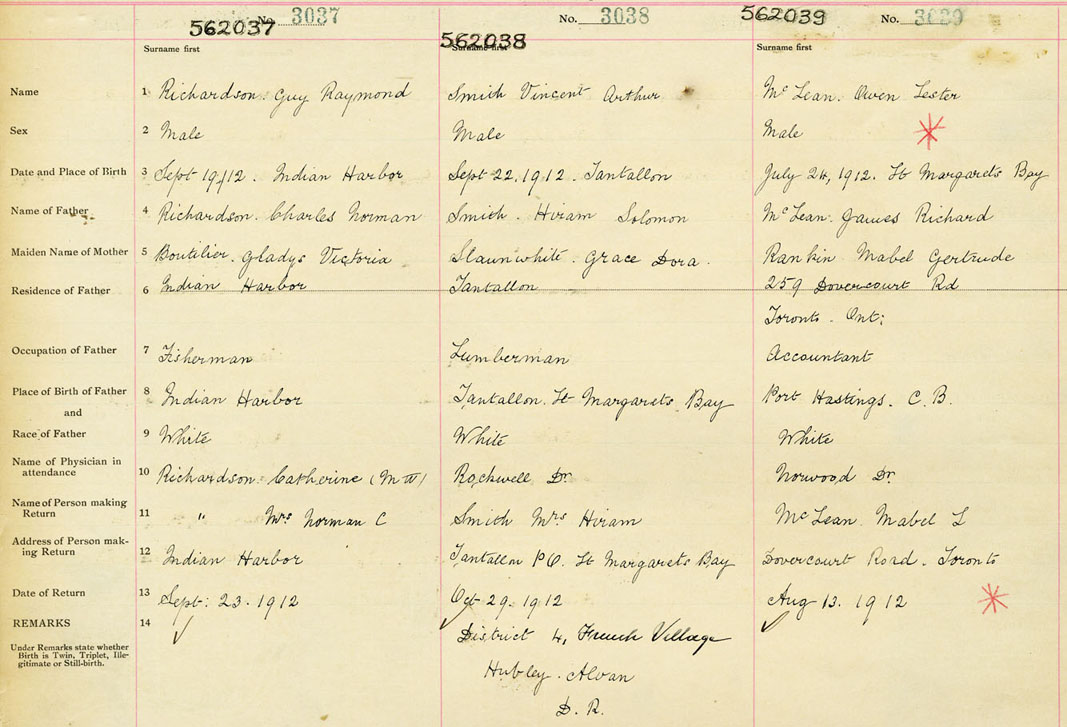 562037 No. 3037 No. 3038 562039 No. 3039
Surname first 562038 Surname first Surname first
Name 1 Richardson. Guy Raymond Smith Vincent Arthur Mc Lean. Owen Lester
Sex 2 Male Male Male
Date and Place of Birth 3 Sept 19/12. Indian Harbor Sept 22. 1912. Tantallon July 24, 1912. St Margarets Bay
Name of Father 4 Richardson. Charles Norman Smith. Hiram Solomon Mc Lean. James Richard
Maiden Name of Mother 5 Boutilier. Gladys Victoria Slaunwhite. Grace Dora. Rankin Mabel Gertrude
Residence of Father 6 Indian Harbor Tantallon 259 Dovercourt Rd
Toronto. Ont:
Occupation of Father 7 Fisherman Lumberman Accountant
Place of Birth of Father 8 Indian Harbor Tantallon. St Margarets Bay Port Hastings. C. B.
and
Race of Father 9 White White White
Name of Physician in
attendance 10 Richardson. Catherine (M W) Rockwell Dr. Norwood Dr.
Name of Person making
Return 11 " Mrs Norman C Smith Mrs Hiram Mc Lean. Mabel L
Address of Person mak-
ing Return 12 Indian Harbor Tantallon P.O. St Margarets Bay Dovercourt Road. Toronto
Date of Return 13 Sept: 23. 1912 Oct 29. 1912 Aug 13. 1912
REMARKS 14 District 4, French Village
Under Remarks state whether
Birth is Twin, Triplet, Ille-
gitimate or Still-birth.
Hubley. Alvan
D. R.